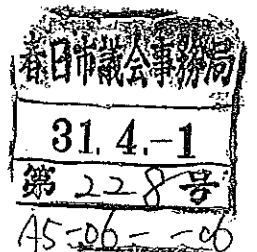 春日市議会事務局
31. 4. -1
第 228 号
A5-06- -06